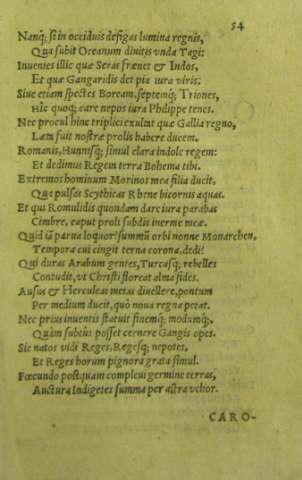 54
Nanq; si in occiduis defigas lumina regnis,
Qua subit Oceanum diuitis vnda Tagi:
Inuenies illic quæ Seras frænet & Indos,
Et quæ Gangaridis det pia iura viris:
Siue etiam spectes Boream, septemq; Triones,
Hic quoq; care nepos iura Philippe tenes.
Nec procul hinc triplici exultat quæ Gallia regno,
Læta fuit nostræ prolis habere ducem.
Romanis, Hunnisq; simul clara indole regem:
Et dedimus Regem terra Bohema tibi.
Extremos hominum Morinos mea filia ducit,
Quæ pulsas Scythicas Rhene bicornis aquas.
Et qui Romulidis quondam dare iura parabas
Cimbre, caput proli subdis inerme meæ.
Quid tā parua loquor? summū orbi nonne Monarchen,
Tempora cui cingit terna corona, dedi?
Qui duras Arabum gentes, Turcasq; rebelles
Contudit, vt Christi floreat alma fides.
Ausus & Herculeas metas diuellere, pontum
Per medium ducit, quò noua regna petat.
Nec prius inuentis statuit finemq; modumq;,
Quàm subtus posset cernere Gangis opes.
Sic natos vidi Reges, Regesq; nepotes,
Et Reges horum pignora grata simul.
Fœcundo postquam compleui germine terras,
Auctura Indigetes summa per astra vehor.
CARO-